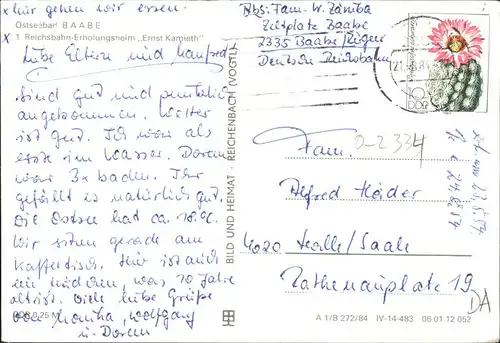 x hier gehen wir essen.
Ostseebad BAABE
x 1 Reichsbahn-Erholungsheim „Ernst Kamieth"
Liebe Eltern und Manfred
Sind gut und pünktlich
angekommen. Wetter
ist gut. Ich war als
erste im Wasser. Doreen
war 3x baden. Ihr
gefällt es natürlich gut.
Die Ostsee hat ca. 18°C.
Wir sitzen gerade am
Kaffeetisch. Hier ist auch
ein Mädchen, was 10 Jahre
alt ist. Viele liebe Grüße
von Monika, Wolfgang
u. Doreen
DDR 0,25 M
BILD UND HEIMAT · REICHENBACH (VOGTL)
Abs. Fam. W.
Zeltplatz Baabe
2335 Baabe/Rügen
Deutsche Reichsbahn
10
DDR
0-2334
Fam.
Alfred Häder
4020 Halle/Saale
Rathenauplatz 19
DA
A 1/B 272/84 IV-14-483 06 01 12 052